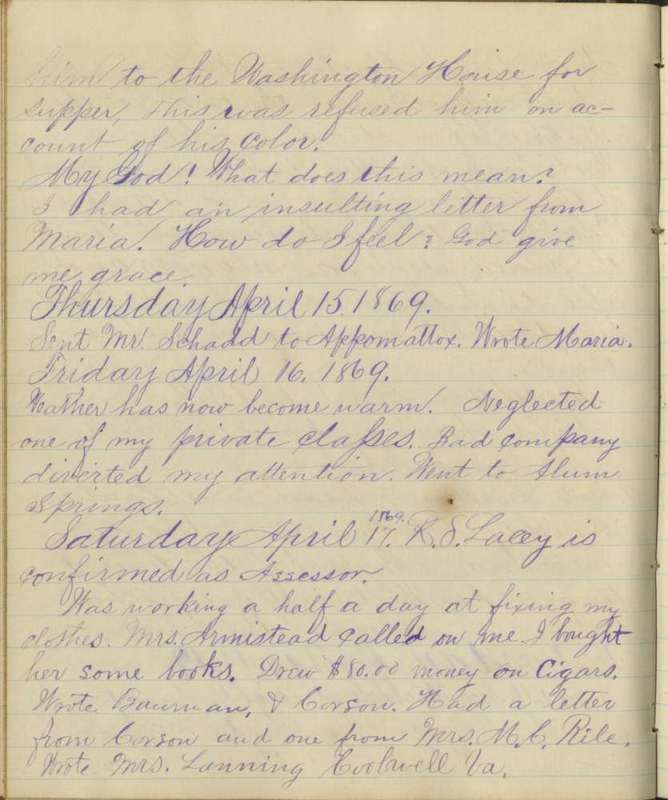 him to the Washington House for
supper, this was refused him on ac-
count of his color.
My God! What does this mean?
I had an insulting letter from
Maria. How do I feel? God give
me grace.
Thursday April 15. 1869.
Sent Mr. Schadd to Appomattox. Wrote Maria.
Friday April 16. 1869.
Weather has now become warm. Neglected
one of my private classes. Bad company
diverted my attention. Went to Alum
Springs.
Saturday April 17. 1869. R. S. Lacey is
confirmed as Assessor.
Was working a half a day at fixing my
clothes. Mrs. Armistead called on me. I bought
her some books. Drew $80.00 money on Cigars.
Wrote Bowman, & Corson. Had a letter
from Corson and one from Mrs. M. C. Rile.
Wrote Mrs. Lanning Va.